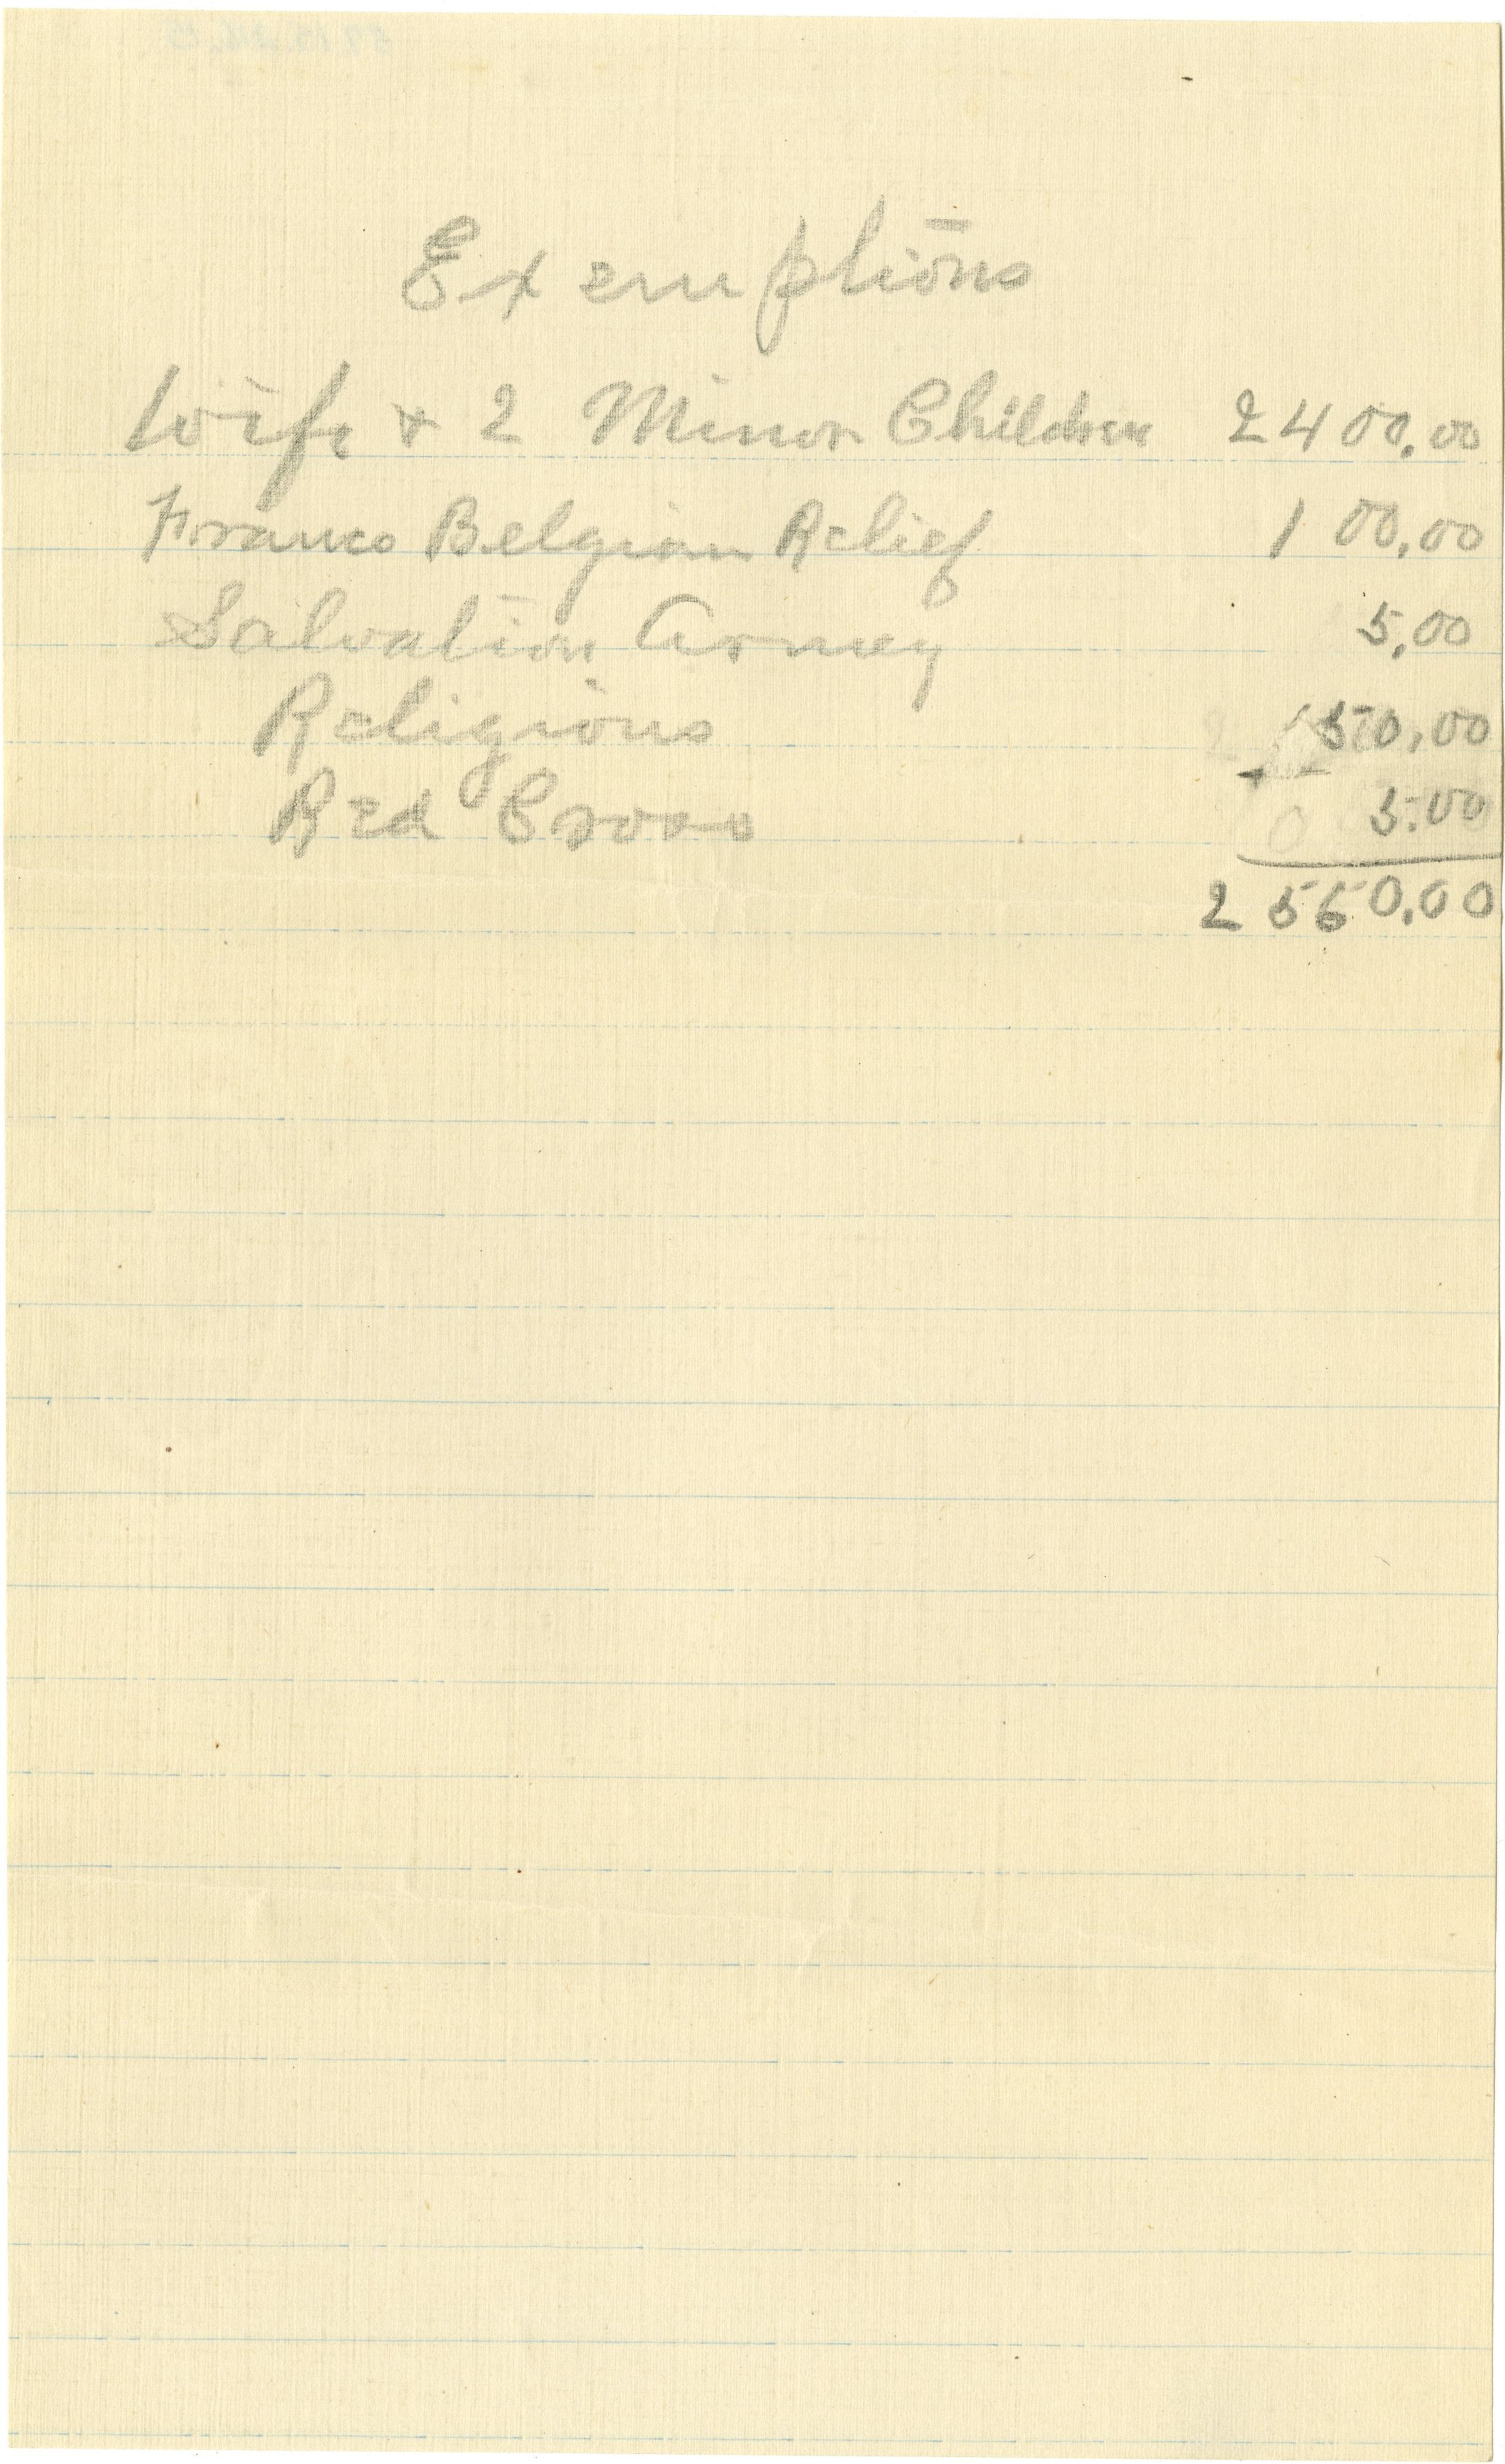 Exemptions
Wife & 2 Minor Children 2400.00
Franco Belgian Relief 100.00
Salvation Armey 5.00
Religious 50.00
Red Cross 5.00
2560.00